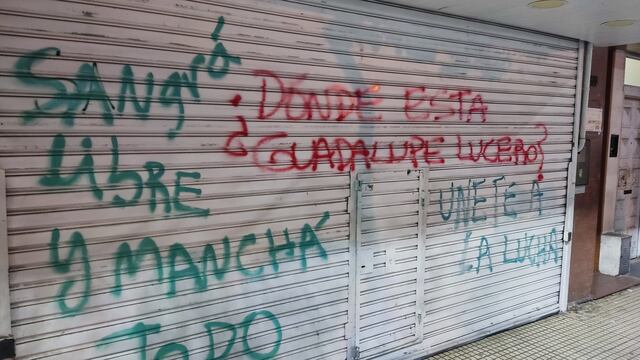 Sangró
Libre
Y Manchá
Todo
¿Dónde está
¿Guadalupe Lucero?
Únete a
la lucha